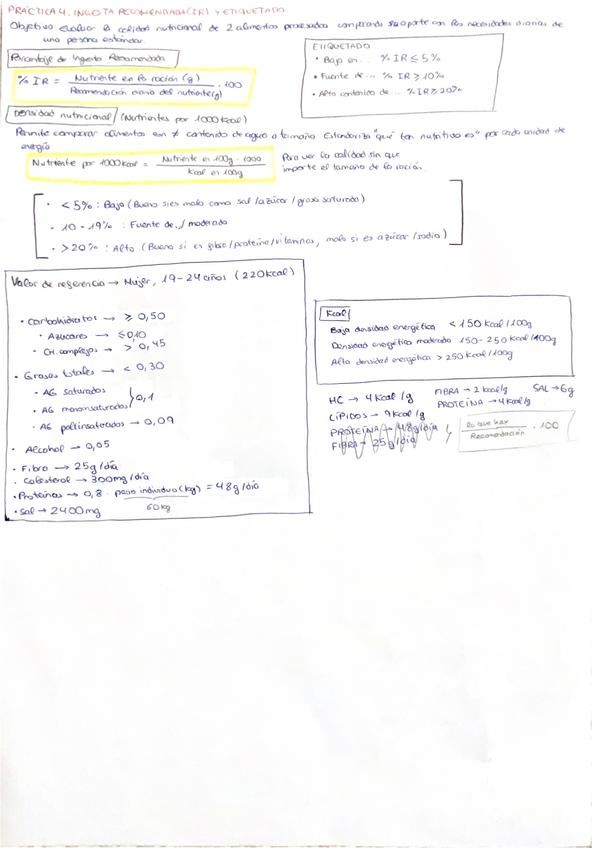 PRÁCTICA 4. INGESTA RECOMENDADA (IR) Y ETIQUETADO
Objetivo: Evaluar la calidad nutricional de 2 alimentos procesados comparando su aporte con las necesidades diarias de
una persona estándar.
Porcentaje de Ingesta Recomendada
% IR = Nutriente en la ración (g) / Recomendación diaria del nutriente (g) · 100
ETIQUETADO
• Bajo en... % IR ≤ 5%
• Fuente de... % IR ≥ 10%
• Alto contenido de... % IR ≥ 20%
Densidad nutricional (Nutrientes por 1000 Kcal)
Permite comparar alimentos con ≠ contenido de agua o tamaño. Estandariza "qué tan nutritivo es" por cada unidad de
energía
Nutriente por 1000 Kcal = Nutriente en 100g · 1000 / Kcal en 100g
Para ver la calidad sin que
importe el tamaño de la ración.
• < 5% : Bajo (Bueno si es malo como sal /azúcar / grasa saturada)
• 10 - 19% : Fuente de../ moderado
• > 20% : Alto (Bueno si es fibra/proteína/vitaminas, malo si es azúcar /sodio)
Valor de referencia → Mujer, 19-24 años (220 kcal)
• Carbohidratos → ≥ 0,50
• Azúcares → ≤ 0,10
• CH. complejos → > 0,45
• Grasas totales → < 0,30
• AG saturados
• AG monoinsaturados } 0,1
• AG poliinsaturados → 0,09
• Alcohol → 0,05
• Fibra → 25g /día
• Colesterol → 300mg /día
• Proteínas → 0,8 · peso individuo (kg) = 48g /día
60 kg
• Sal → 2400 mg
Kcal
Baja densidad energética < 150 Kcal / 100g
Densidad energética moderada 150 - 250 Kcal / 100g
Alta densidad energética > 250 Kcal / 100g
HC → 4 Kcal /g FIBRA → 2 kcal/g SAL → 6g
LÍPIDOS → 9 kcal /g PROTEÍNA → 4 Kcal/g
PROTEÍNA → 48g /día
FIBRA → 25 g /día
lo que hay / Recomendación · 100